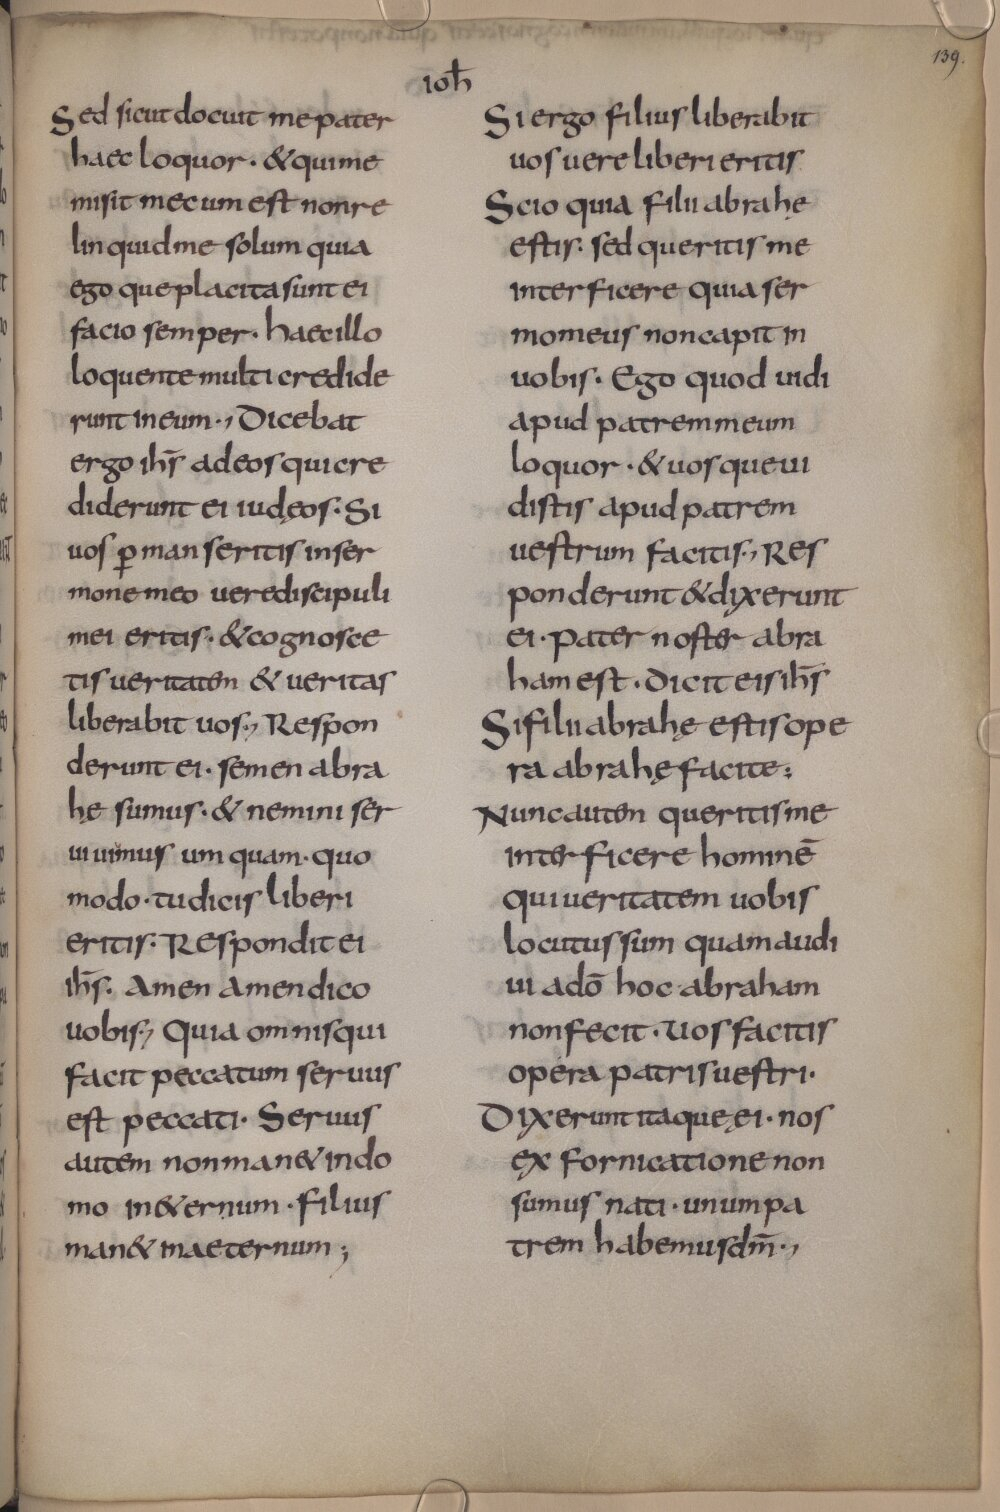 139.
ioh̄
Sed sicut docuit me pater
haec loquor· & qui me
misit mecum est non re
linquid me solum quia
ego que placita sunt ei
facio semper· haec illo
loquente multi credide
runt in eum·, Dicebat
ergo ih̄s ad eos qui cre
diderunt ei iudęos· Si
uos ꝑmanseritis in ser
mone meo uere discipuli
mei eritis· & cognosce
tis ueritatem & ueritas
liberabit uos·, Respon
derunt ei· semen abra
hę sumus· & nemini ser
uiuimus umquam· quo
modo· tu dicis liberi
eritis· Respondit ei
ih̄s· Amen amen dico
uobis·, Quia omnis qui
facit peccatum seruus
est peccati· Seruus
autem non man& in do
mo in &ernum· filius
man& in aeternum;
Si ergo filius liberabit
uos uere liberi eritis
Scio quia filii abrahę
estis· sed queritis me
interficere quia ser
mo meus non capit in
uobis· Ego quod uidi
apud patrem meum
loquor· & uos que ui
distis apud patrem
uestrum facitis·, Res
ponderunt & dixerunt
ei· pater noster abra
ham est· Dicit eis ih̄s
Si filii abrahę estis ope
ra abrahę facite;
Nunc autem queritis me
interficere hominē
qui ueritatem uobis
locutus sum quam audi
ui a dō hoc abraham
non fecit· Uos facitis
opera patris uestri·
Dixerunt itaque ei· nos
ex fornicatione non
sumus nati· unum pa
trem habemus dm̄·,